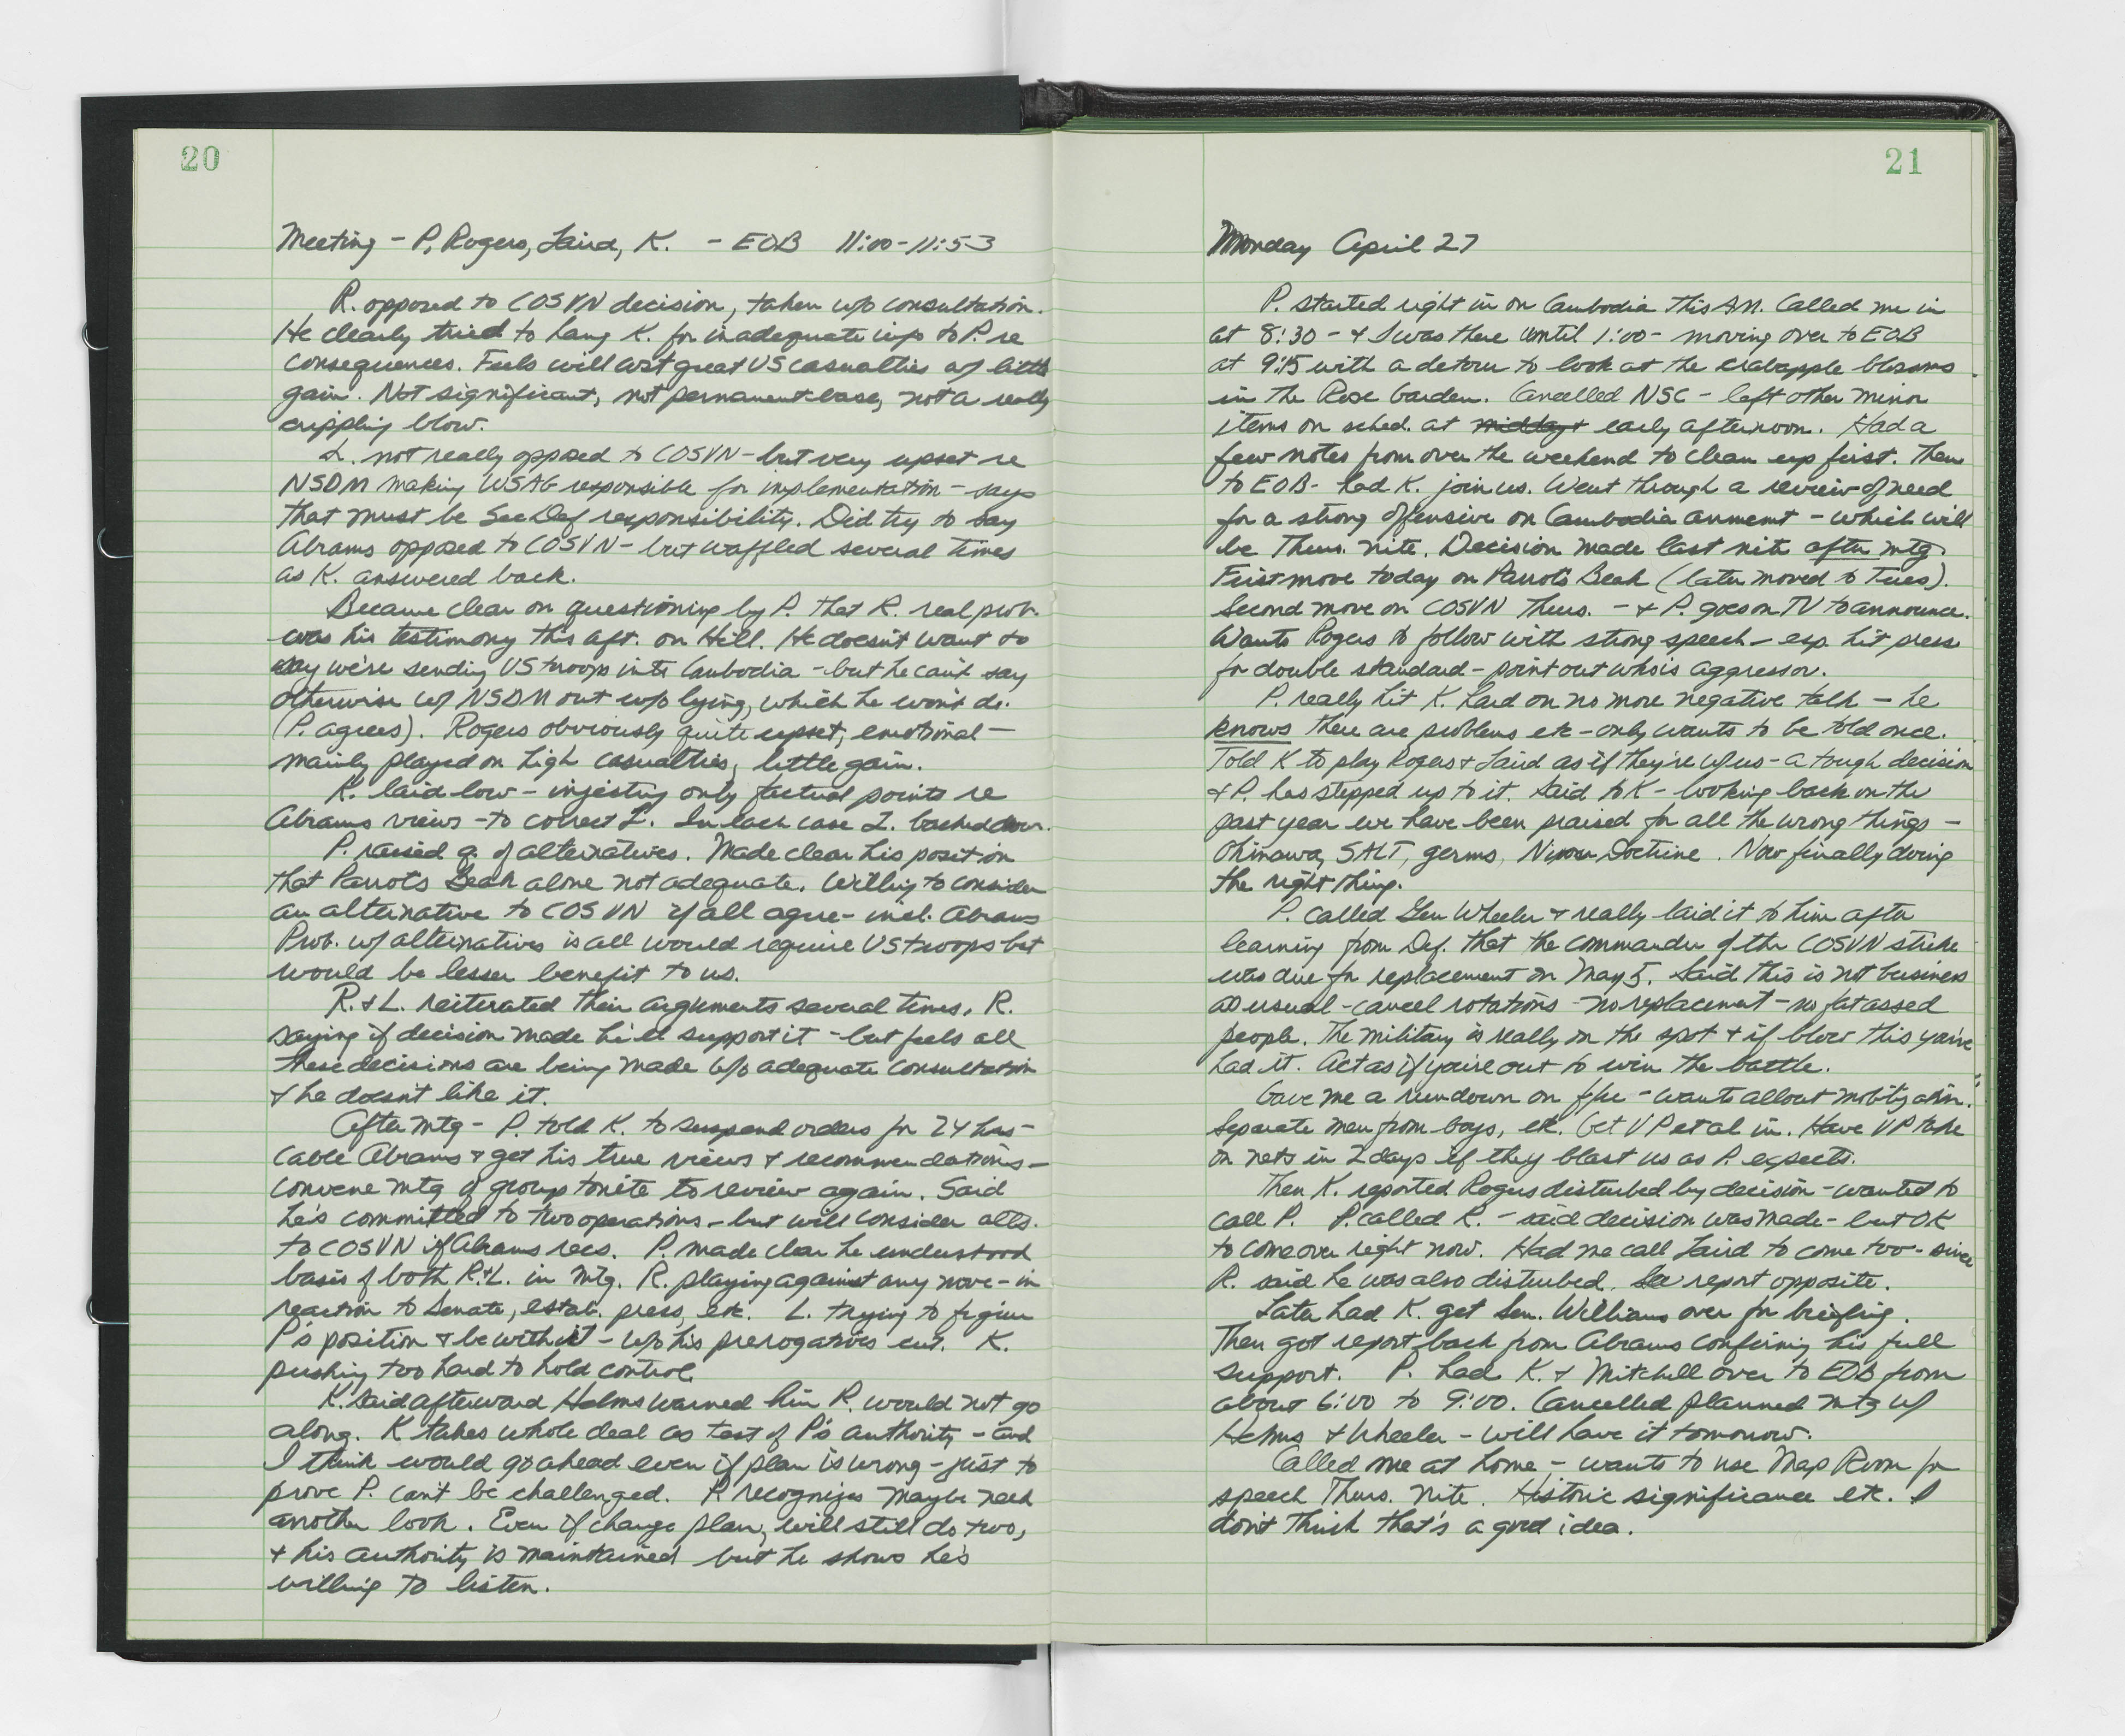 20
Meeting – P, Rogers, Laird, K. – EOB 11:00–11:53
R. opposed to COSVN decision, taken w/o consultation.
He clearly tried to hang K. for inadequate info to P. re
consequences. Feels will cost great US casualties w/ little
gain. Not significant, not permanent base, not a really
crippling blow.
L. not really opposed to COSVN – but very upset re
NSDM making WSAG responsible for implementation – says
that must be SecDef responsibility. Did try to say
Abrams opposed to COSVN – but waffled several times
as K. answered back.
Became clear on questioning by P. that R. real prob.
was his testimony this aft. on Hill. He doesn't want to
say we're sending US troops into Cambodia – but he can't say
otherwise w/ NSDM out w/o lying, which he won't do.
(P. agrees). Rogers obviously quite upset, emotional –
mainly played on high casualties, little gain.
K. laid low – injecting only factual points re
Abrams views – to correct L. In each case L. backed down.
P. raised q. of alternatives. Made clear his position
that Parrot's Beak alone not adequate. Willing to consider
an alternative to COSVN if all agree – incl. Abrams
Prob. w/ alternatives is all would require US troops but
would be lesser benefit to us.
R. & L. reiterated their arguments several times, R.
saying if decision made he'll support it – but feels all
these decisions are being made w/o adequate consultation
& he doesn't like it.
After mtg – P. told K. to suspend orders for 24 hrs –
cable Abrams & get his true views & recommendations –
convene mtg of group tonite to review again. Said
he's committed to two operations – but will consider alts.
to COSVN if Abrams recs. P. made clear he understood
basis of both R. & L. in mtg. R. playing against any move – in
reaction to Senate, estab. press, etc. L. trying to figure
P's position & be with it – w/o his prerogatives cut. K.
pushing too hard to hold control.
K. said afterward Helms warned him R. would not go
along. K takes whole deal as test of P's authority – and
I think would go ahead even if plan is wrong – just to
prove P. can't be challenged. P. recognizes maybe need
another look. Even if change plan, will still do two,
& his authority is maintained but he shows he's
willing to listen.
21
Monday April 27
P. started right in on Cambodia this AM. Called me in
at 8:30 – & I was there until 1:00 – moving over to EOB
at 9:15 with a detour to look at the crabapple blossoms
in the Rose Garden. Cancelled NSC – left other minor
items on sched. at midday & early afternoon. Had a
few notes from over the weekend to clean up first. Then
to EOB – had K. join us. Went through a review of need
for a strong offensive on Cambodia anncmt – which will
be Thurs. nite. Decision made last nite after mtg.
First move today on Parrot's Beak (later moved to Tues).
Second move on COSVN Thurs. – & P. goes on TV to announce.
Wants Rogers to follow with strong speech – esp. hit press
for double standard – point out who is aggressor.
P. really hit K. hard on no more negative talk – he
knows there are problems etc – only wants to be told once.
Told K to play Rogers & Laird as if they're w/ us – a tough decision
& P. has stepped up to it. Said to K – looking back on the
past year we have been praised for all the wrong things –
Okinawa, SALT, germs, Nixon Doctrine. Now finally doing
the right thing.
P. called Gen Wheeler & really laid it to him after
learning from Def. that the commander of the COSVN strike
was due for replacement on May 5. Said this is not business
as usual – cancel rotations – no replacement – no fat assed
people. The military is really on the spot & if blow this you've
had it. Act as if you're out to win the battle.
Gave me a rundown on – wants all out mobilization.
Separate men from boys, etc. Get VP et al in. Have VP take
on nets in 2 days if they blast us as P. expects.
Then K. reported Rogers disturbed by decision – wanted to
call P. P. called R. – said decision was made – but OK
to come over right now. Had me call Laird to come too – since
R. said he was also disturbed. See report opposite.
Later had K. get Sen. Williams over for briefing.
Then got report back from Abrams confirming his full
support. P. had K. & Mitchell over to EOB from
about 6:00 to 9:00. Cancelled planned mtg w/
Helms & Wheeler – will have it tomorrow.
Called me at home – wants to use Map Room for
speech Thurs. nite. Historic significance etc. I
don't think that's a good idea.